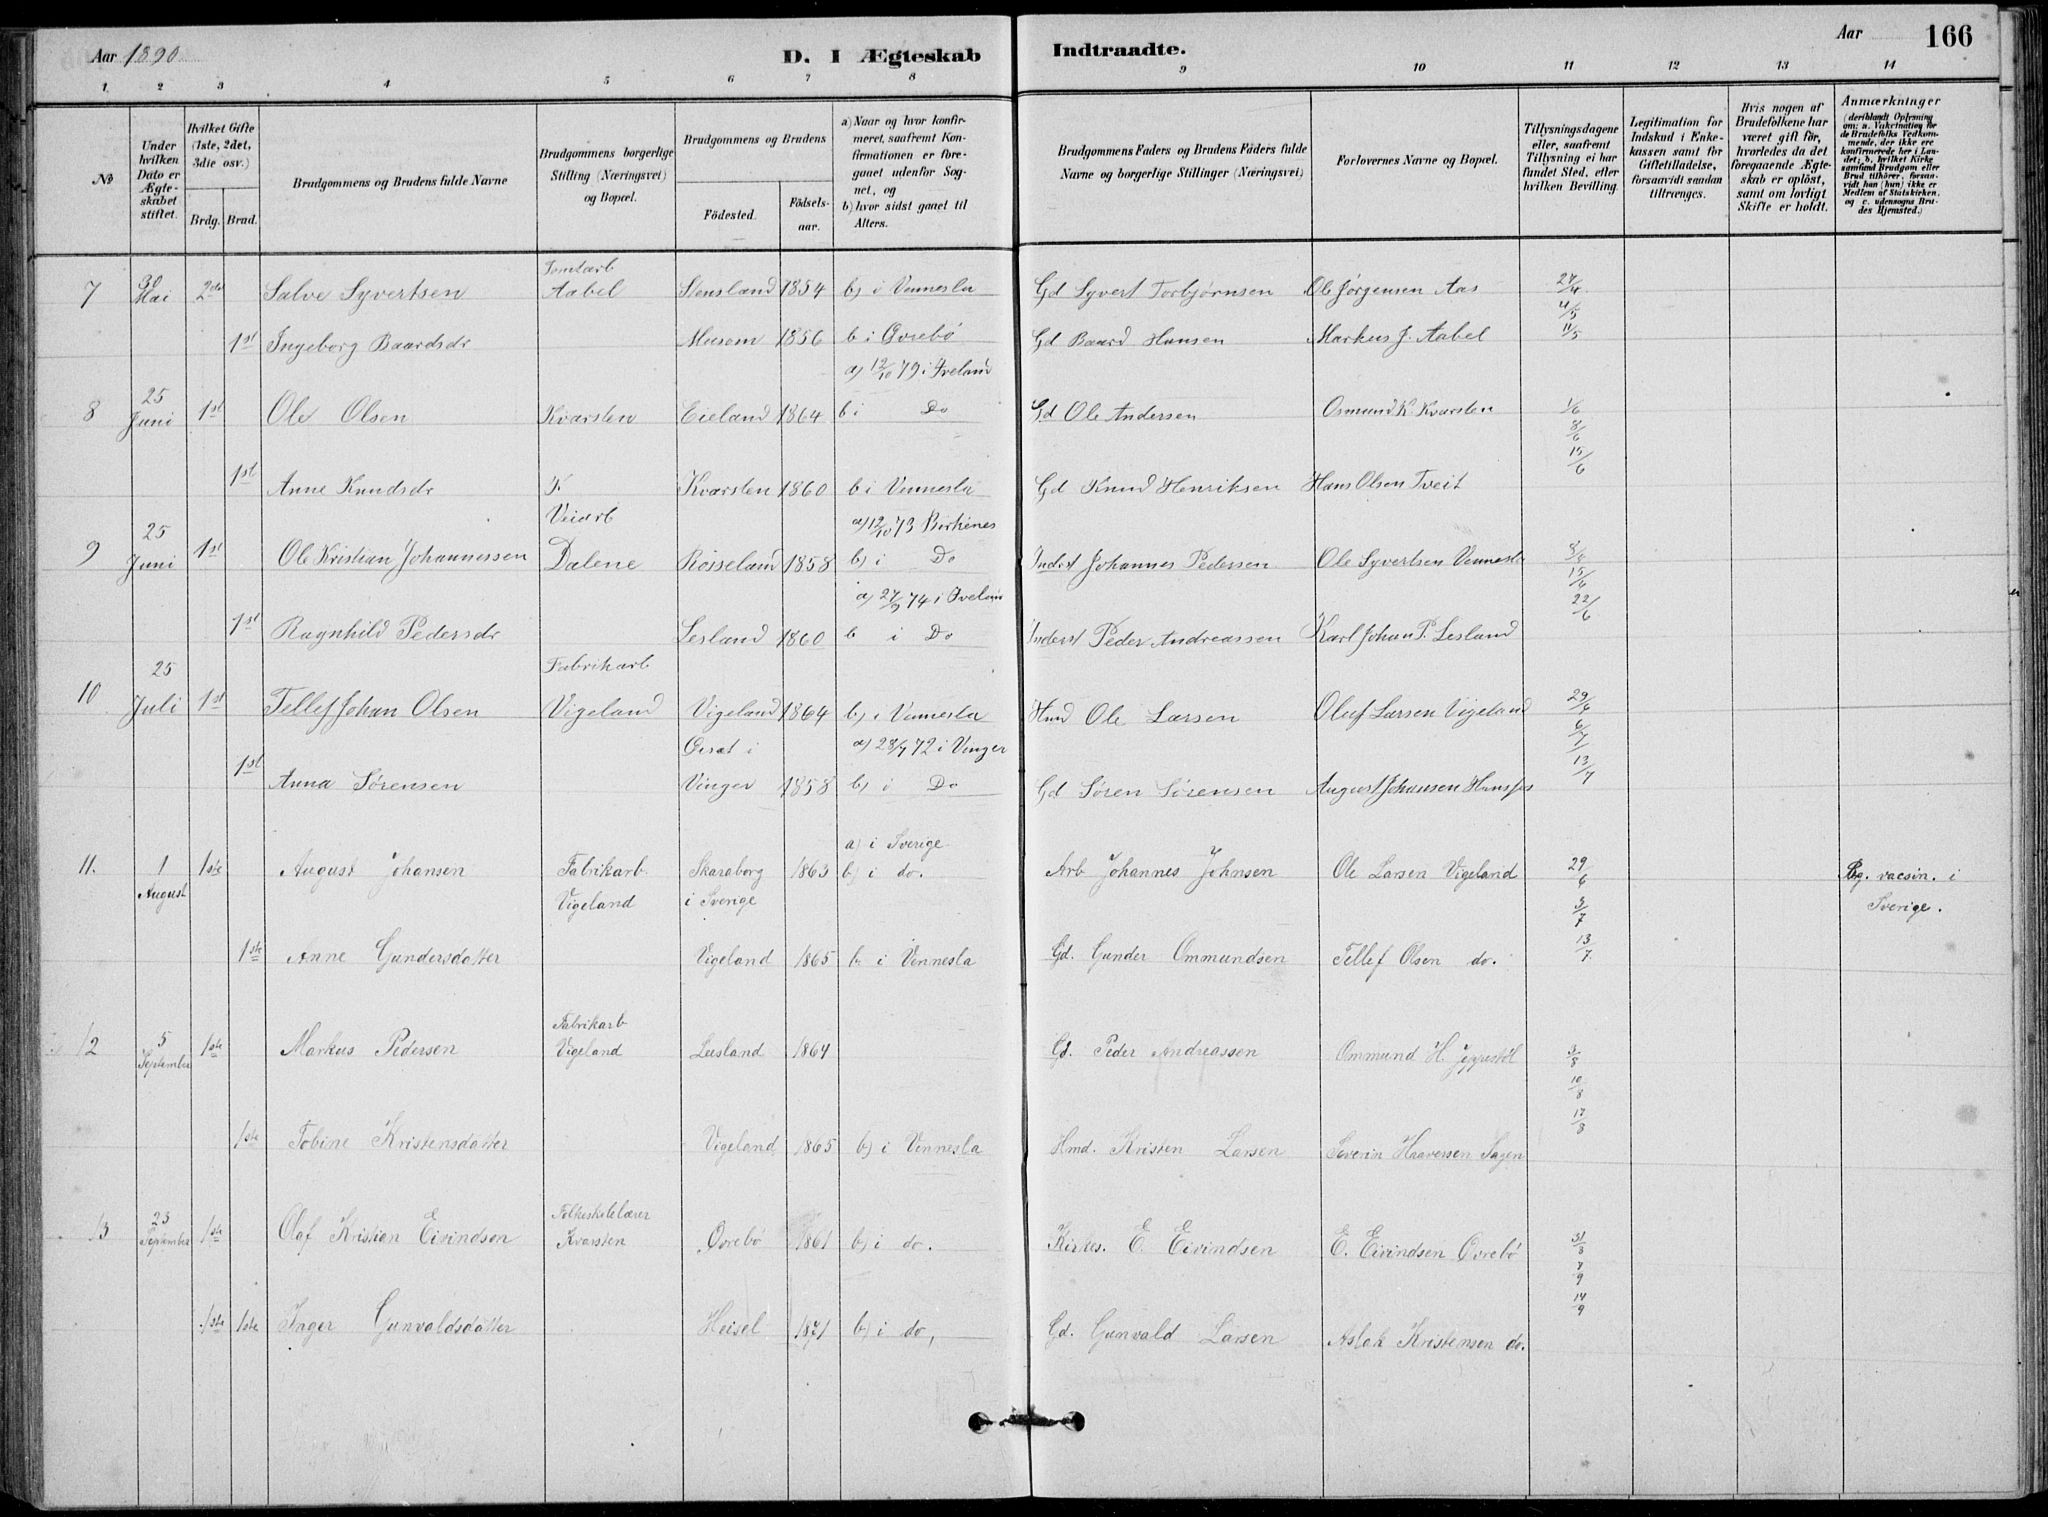 Aar 1890
D. I Ægteskab Indtraadte.
Aar 166
1 2 3 4 5 6 7 8 9 10 11 12 13 14
№
Under hvilken Dato er Ægteskabet stiftet.
Hvilket Gifte (1ste, 2det, 3die osv.)
Brdg. Brud.
Brudgommens og Brudens fulde Navne
Brudgommens borgerlige Stilling (Næringsvei) og Bopæl.
Brudgommens og Brudens
Födested.
Födselsaar.
a) Naar og hvor konfirmeret, saafremt Konfirmationen er foregaaet udenfor Sognet, og
b) hvor sidst gaaet til Alters.
Brudgommens Faders og Brudens Faders fulde Navne og borgerlige Stillinger (Næringsvei)
Forlovernes Navne og Bopæl.
Tillysningsdagene eller, saafremt Tillysning ei har fundet Sted, efter hvilken Bevilling.
Legitimation for Indskud i Enkekassen samt for Giftetilladelse, forsaavidt saadan tiltrænges.
Hvis nogen af Brudefolkene har været gift för, hvorledes da det foregaaende Ægteskab er oplöst, samt om lovligt Skifte er holdt.
Anmærkninger (deriblandt Oplysning om: a. Vakcination for de Brudefolks Vedkommende, der ikke ere konfirmerede her i Landet; b. hvilket Kirkesamfund Brudgom eller Brud tilhörer, forsaavidt han (hun) ikke er Medlem af Statskirken, og c. udensogns Brudes Hjemsted.)
7 30 Mai 2de Salve Syvertsen Tomtarb Aabel Stensland 1854 b) i Vennesla Gd Syvert Torbjørnsen Ole Jørgensen Aas 27/4 4/5 11/5
1st Ingeborg Baardsdr Musom 1856 b i Øvrebö Gd Baard Hansen Markus J. Aabel
8 25 Juni 1st Ole Olsen Kvarsten Eieland 1864 a) 12/10 79 i Iveland b i Do Gd Ole Andersen Osmund K. Kvarsten 1/6 8/6 15/6
1st Anne Knudsdr K Kvarsten 1860 b i Vennesla Gd Knud Henriksen Hans Olsen Tveit
9 25 Juni 1st Ole Kristian Johannessen Veiarb Dalene Röiseland 1858 a) 12/10 73 Birkenes b) i Do Inderst Johannes Pedersen Ole Syvertsen Vennesla 8/6 15/6 22/6
1st Ragnhild Pedersdr Lesland 1860 a) 27/9 74 i b i Do Inderst Peder Andreassen Karl Johan P. Lesland
10 25 Juli 1st Tellef Johan Olsen Fabrikarb Vigeland Vigeland 1864 b) i Vennesla Hmd Ole Larsen Oluf Larsen Vigeland 29/6 6/7 13/7
1st Anna Sörensen i Vinger 1858 a) 28/7 72 i Vinger b) i Do Gd Sören Sörensen August Johansen
11. 1 August 1ste August Johansen Fabrikarb. Vigeland Skaraborg i Sverige 1863 a) i Sverige b) i do. Arb Johannes Johnsen Ole Larsen Vigeland 29/6 3/7 13/7 Bg. vacsin. i Sverige.
1ste Anne Gundersdatter Vigeland 1865 b. i Vennesla Gd. Gunder Ommundsen Tellef Olsen do.
12 5 September 1ste Markus Pedersen Fabrikarb Vigeland Lesland 1864 Gd. Peder Andreassen Ommund H. Jeppestöl 3/8 10/8 17/8
1ste Tobine Kristensdatter Vigeland 1865 b) i Vennesla Hmd. Kristen Larsen Severin Haaversen Sagen
13 23 September 1ste Olaf Kristian Eivindsen Folkeskolelærer Kvarsten Øvrebö 1861 b) i do. Kirkes. E. Eivindsen E. Eivindsen Øvrebö 31/8 7/9 14/9
1ste 1ste Inger Gunvaldsdatter Heisel 1871 b) i do, Gd. Gunvald Larsen Aslak Kristensen do.